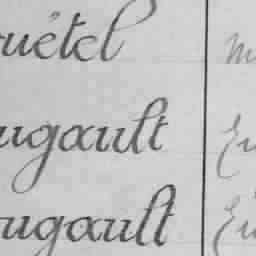 uétel
ugault
ugault